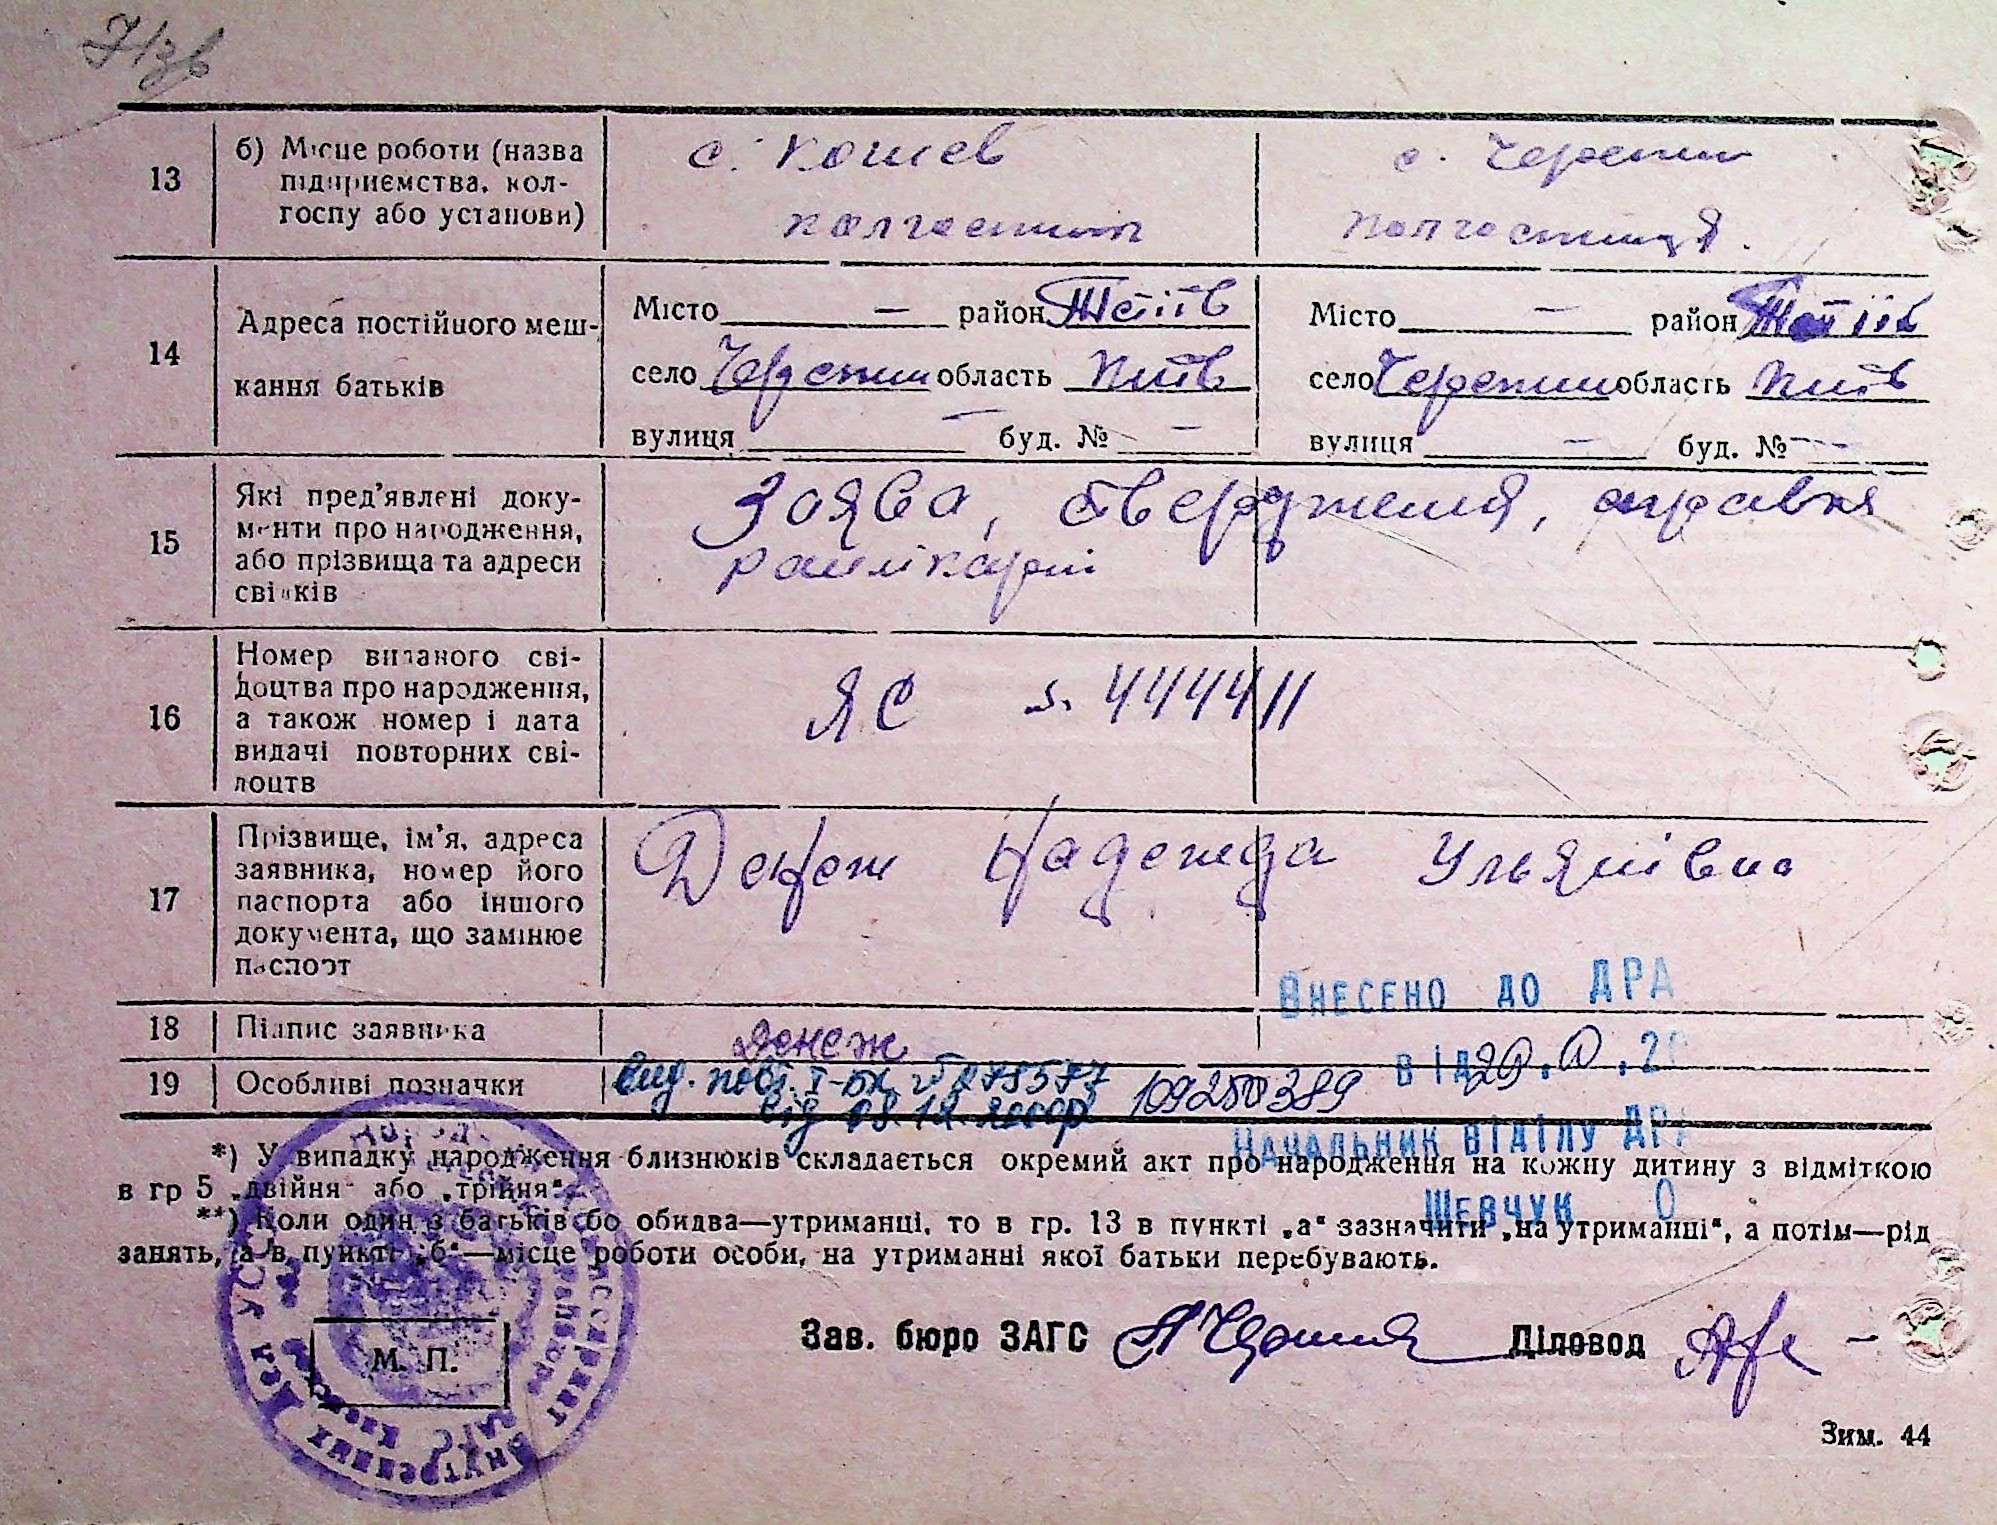 7/зв
13 б) Місце роботи (назва підприємства, кол-
госпу або установи)
с. Кошев
колгоспник
с. Черепин
колгоспниця.
14 Адреса постійного меш-
кання батьків
Місто — район Тетіїв
село Черепин область Київ
вулиця — буд. № —
Місто — район Тетіїв
село Черепин область Київ
вулиця — буд. № —
15 Які пред'явлені доку-
менти про народження,
або прізвища та адреси
свідків
Заява, ствердження, справка
16 Номер виданого сві-
доцтва про народження,
а також номер і дата
видачі повторних сві-
доцтв
ЯС 444411
17 Прізвище, ім'я, адреса
заявника, номер його
паспорта або іншого
документа, що замінює
паспорт
Денеж Надежда Ульянівна
ВНЕСЕНО ДО ДРА
18 Підпис заявника
Денеж
ВІД
19 Особливі позначки
вид. повт. І-БК № 278577
109250389
НАЧАЛЬНИК ВІДІЛУ ДРА
ШЕВЧУК О
*) У випадку народження близнюків складається окремий акт про народження на кожну дитину з відміткою
в гр 5 „двійня" або „трійня".
**) Коли один з батьків бо обидва—утриманці, то в гр. 13 в пункті „а" зазначити „на утриманці", а потім—рід
занять, а в пункті „б"—місце роботи особи, на утриманні якої батьки перебувають.
М. П.
Зав. бюро ЗАГС
Діловод
Зим. 44